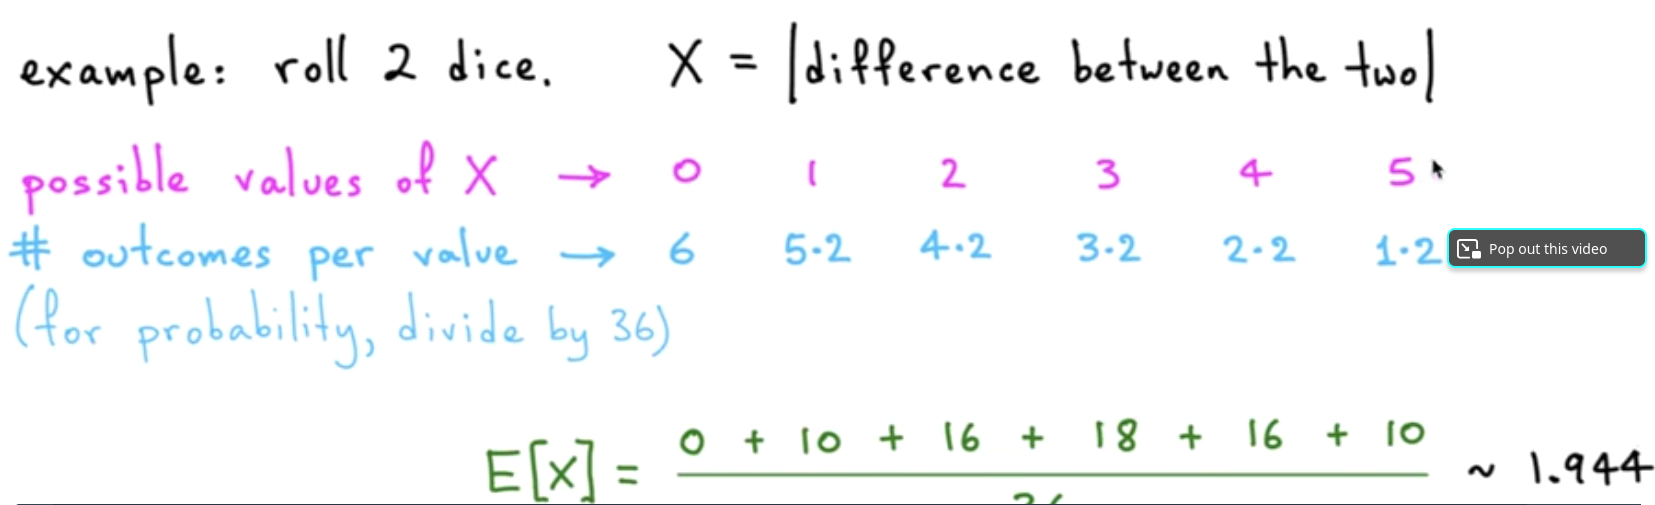 example: roll 2 dice. X = |difference between the two|
possible values of X → 0 1 2 3 4 5
# outcomes per value → 6 5·2 4·2 3·2 2·2 1·2
Pop out this video
(for probability, divide by 36)
0 + 10 + 16 + 18 + 16 + 10
E[X] = ~ 1.944